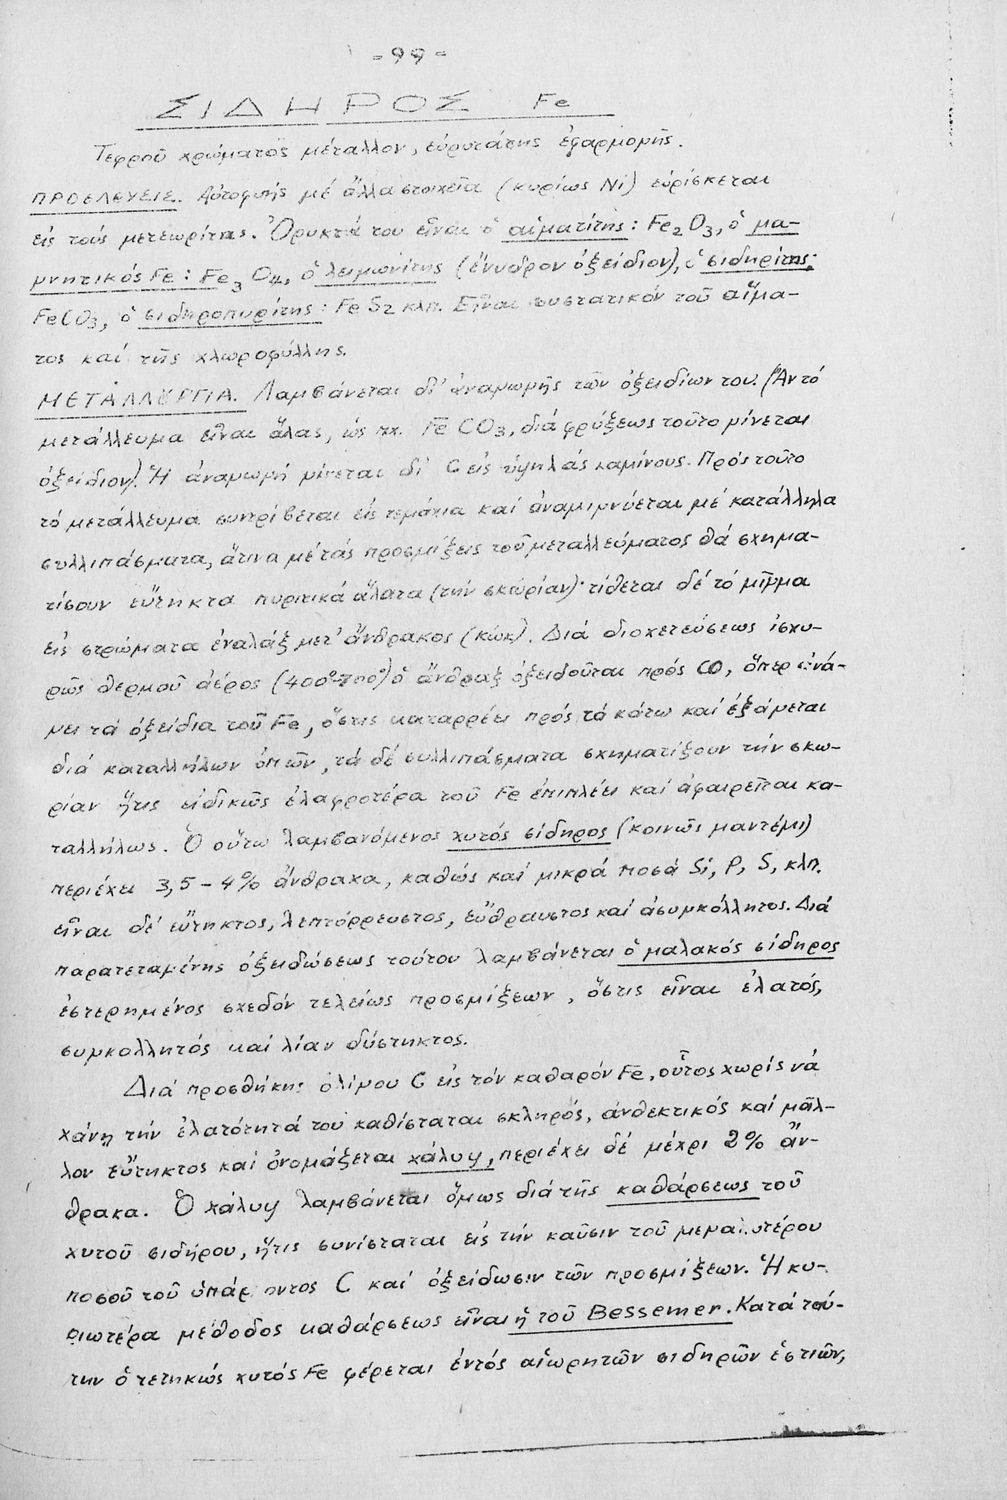 -99-
ΣΙΔΗΡΟΣ Fe
Τεφροῦ χρώματος μέταλλον, εὐρυτάτης ἐφαρμογῆς.
ΠΡΟΕΛΕΥΣΙΣ. Αὐτοφυής μέ ἄλλα στοιχεῖα (κυρίως Ni) εὑρίσκεται
εἰς τούς μετεωρίτας. Ὀρυκτά του εἶναι ὁ αἱματίτης: Fe₂O₃, ὁ μα-
γνητικός Fe: Fe₃O₄, ὁ λειμωνίτης (ἔνυδρον ὀξείδιον), ὁ σιδηρίτης:
FeCO₃, ὁ σιδηροπυρίτης: FeS₂ κλπ. Εἶναι συστατικόν τοῦ αἵμα-
τος καί τῆς χλωροφύλλης.
ΜΕΤΑΛΛΥΡΓΙΑ. Λαμβάνεται δι' ἀναγωγῆς τῶν ὀξειδίων του. (Ἄν τό
μετάλλευμα εἶναι ἅλας, ὡς πχ. FeCO₃, διά φρύξεως τοῦτο γίνεται
ὀξείδιον). Ἡ ἀναγωγή γίνεται δι' C εἰς ὑψηλάς καμίνους. Πρός τοῦτο
τό μετάλλευμα συντρίβεται εἰς τεμάχια καί ἀναμιγνύεται μέ κατάλληλα
συλλιπάσματα, ἅτινα μέ τάς προσμίξεις τοῦ μεταλλεύματος θά σχημα-
τίσουν εὔτηκτα πυριτικά ἅλατα (τήν σκωρίαν)· τίθεται δέ τό μῖγμα
εἰς στρώματα ἐναλάξ μετ' ἄνθρακος (κώκ). Διά διοχετεύσεως ἰσχυ-
ρῶς θερμοῦ ἀέρος (400°-700°) ὁ ἄνθραξ ὀξειδοῦται πρός CO, ὅπερ ἀνά-
γει τά ὀξείδια τοῦ Fe, ὅστις καταρρέει πρός τά κάτω καί ἐξάγεται
διά καταλλήλων ὀπῶν, τά δέ συλλιπάσματα σχηματίζουν τήν σκω-
ρίαν ἥτις εἰδικῶς ἐλαφροτέρα τοῦ Fe ἐπιπλέει καί ἀφαιρεῖται κα-
ταλλήλως. Ὁ οὕτω λαμβανόμενος χυτός σίδηρος (κοινῶς μαντέμι)
περιέχει 3,5 - 4% ἄνθρακα, καθώς καί μικρά ποσά Si, P, S, κλπ.
εἶναι δέ εὔτηκτος, λεπτόρρευστος, εὔθραυστος καί ἀσυμκόλλητος. Διά
παρατεταμένης ὀξειδώσεως τούτου λαμβάνεται ὁ μαλακός σίδηρος
ἐστερημένος σχεδόν τελείως προσμίξεων, ὅστις εἶναι ἐλατός,
συμκολλητός καί λίαν δύστηκτος.
Διά προσθήκης ὀλίγου C εἰς τόν καθαρόν Fe, οὗτος χωρίς νά
χάνῃ τήν ἐλατότητά του καθίσταται σκληρός, ἀνθεκτικός καί μᾶλ-
λον εὔτηκτος καί ὀνομάζεται χάλυψ, περιέχει δέ μέχρι 2% ἄν-
θρακα. Ὁ χάλυψ λαμβάνεται ὅμως διά τῆς καθάρσεως τοῦ
χυτοῦ σιδήρου, ἥτις συνίσταται εἰς τήν καῦσιν τοῦ μεγαλυτέρου
ποσοῦ τοῦ ὑπάρχοντος C καί ὀξείδωσιν τῶν προσμίξεων. Ἡ κυ-
ριωτέρα μέθοδος καθάρσεως εἶναι ἡ τοῦ Bessemer. Κατά ταύ-
την ὁ τετηκώς χυτός Fe φέρεται ἐντός αἰωρητῶν σιδηρῶν ἑστιῶν,